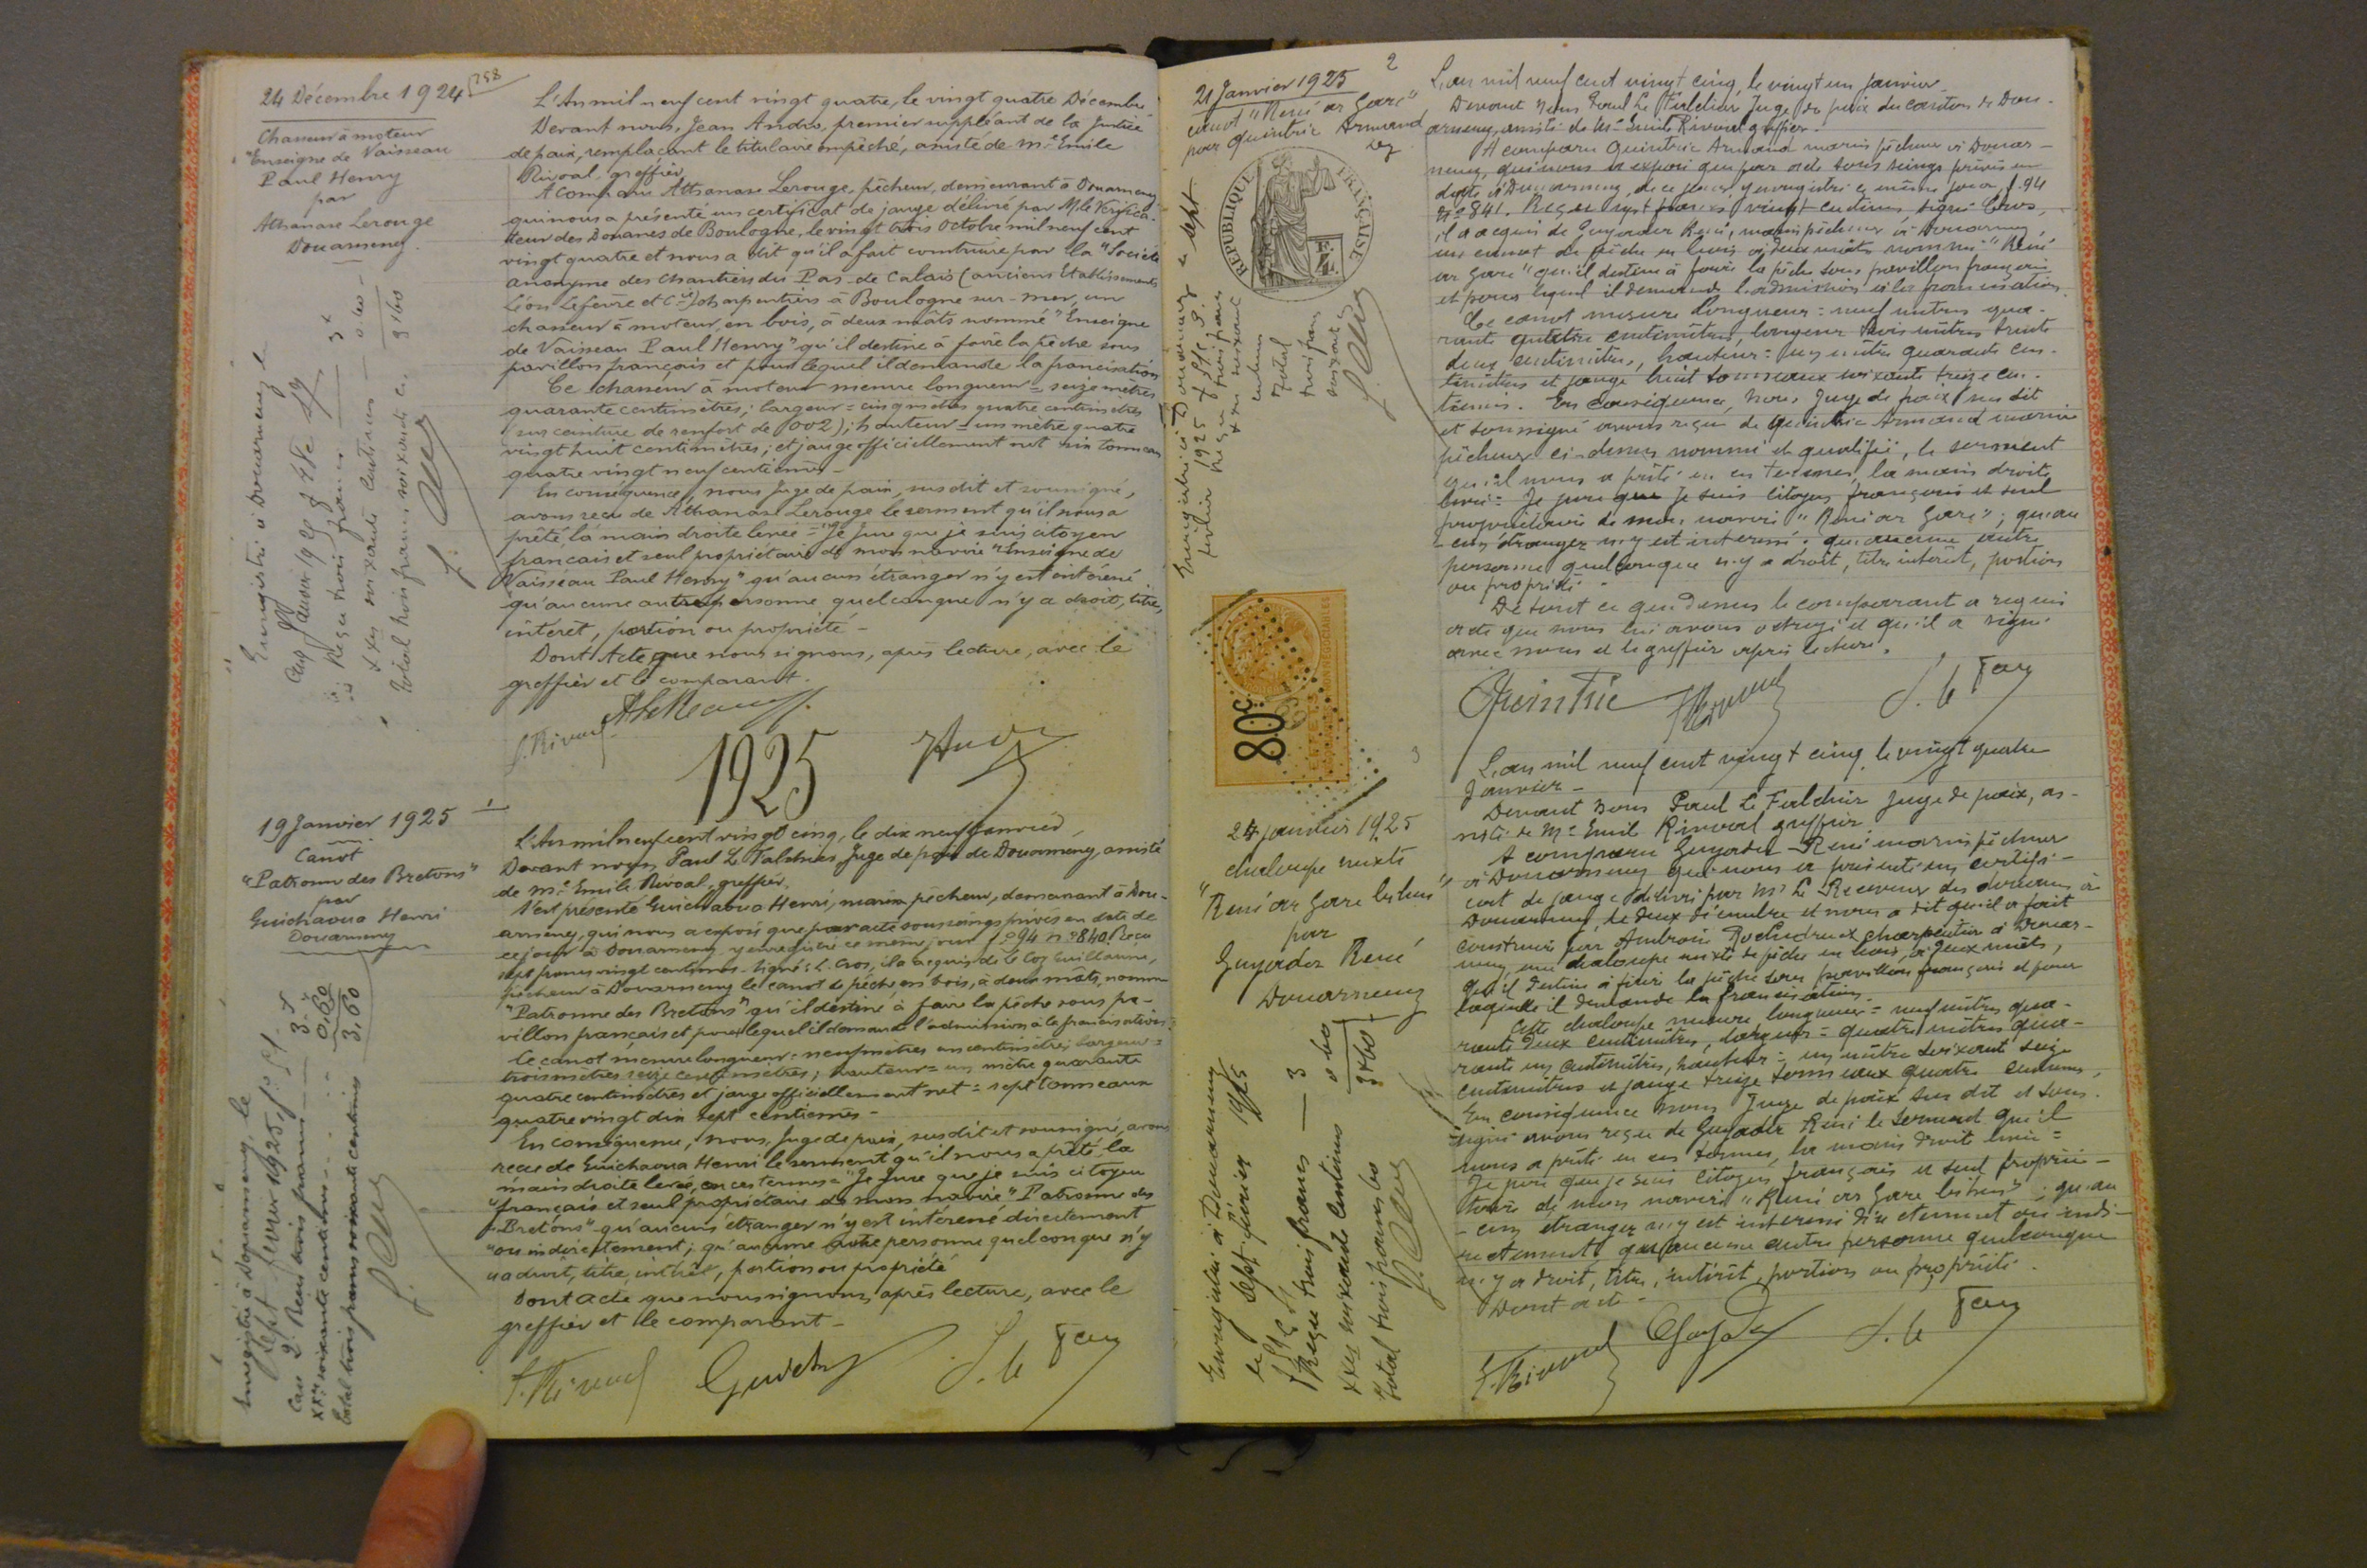 24 Décembre 1924
258
Chasseur à moteur
"Enseigne de Vaisseau
Paul Henry
par
Athanase Lerouge
Douarnenez.
Enregistré à Douarnenez le
Reçu trois francs 3
soixante centimes 0.60
Total trois francs soixante c. 3.60
L'An mil neuf cent vingt quatre, le vingt quatre Décembre
Devant nous, Jean Andro, premier suppléant de la Justice
de paix, remplaçant le titulaire empêché, assisté de Me Emile
Rivoal, greffier,
A comparu Athanase Lerouge, pêcheur, demeurant à Douarnenez
qui nous a présenté un certificat de jauge délivré par M. le Vérifica-
teur des Douanes de Boulogne, le vingt trois Octobre mil neuf cent
vingt quatre et nous a dit qu'il a fait construire par la "Société
anonyme des Chantiers du Pas-de-Calais (anciens Etablissements
Léon Lefevre et Cie) charpentiers à Boulogne sur-mer, un
chasseur à moteur, en bois, à deux mâts nommé "Enseigne
de Vaisseau Paul Henry" qu'il destine à faire la pêche sous
pavillon français et pour lequel il demande la francisation
Ce chasseur à moteur mesure longueur = seize mètres
quarante centimètres; largeur = cinq mètres quatre centimètres
(sur ceinture de renfort de 002); hauteur = un mètre quatre
vingt huit centimètres; et jauge officiellement net six tonneaux
quatre vingt neuf centièmes -
En conséquence, nous Juge de paix, susdit et soussigné,
avons reçu de Athanase Lerouge le serment qu'il nous a
prêté, la main droite levée = "Je jure que je suis citoyen
français et seul propriétaire de mon navire "Enseigne de
Vaisseau Paul Henry" qu'aucun étranger n'y est intéressé
qu'aucune autre personne quelconque n'y a droit, titre,
intérêt, portion ou propriété -
Dont Acte que nous signons, après lecture, avec le
greffier et le comparant.
1925
19 Janvier 1925
1
Canot
"Patronne des Bretons"
par
Guichaoua Henri
Douarnenez
Enregistré à Douarnenez, le
sept février 1925
Case 2 Reçu trois francs 3.
soixante centimes 0.60
Total trois francs soixante centimes 3,60
L'An mil neuf cent vingt cinq, le dix neuf janvier,
Devant nous, Paul Le Falchier Juge de paix de Douarnenez, assisté
de Me Emile Rivoal, greffier,
S'est présenté Guichaoua Henri, marin pêcheur, demeurant à Dou-
arnenez, qui nous a exposé que par acte sous seings privés en date de
ce jour à Douarnenez y enregistré ce même jour fo 94 no 840. Reçu
sept francs vingt centimes - Signé: L. Cros, il a acquis de Le Coz Guillaume,
pêcheur à Douarnenez le canot de pêche en bois, à deux mâts, nommé
"Patronne des Bretons" qu'il destine à faire la pêche sous pa-
villon français et pour lequel il demande l'admission à la francisation
Ce canot mesure longueur = neuf mètres un centimètres largeur =
trois mètres seize centimètres; hauteur = un mètre quarante
quatre centimètres et jauge officiellement net = sept tonneaux
quatre vingt dix sept centièmes -
En conséquence, nous, Juge de paix, susdit et soussigné, avons
reçu de Guichaoua Henri le serment qu'il nous a prêté, la
main droite levée, en ces termes = "Je jure que je suis citoyen
"français et seul propriétaire de mon navire "Patronne des
Bretons" qu'aucun étranger n'y est intéressé directement
"ou indirectement; qu'aucune autre personne quelconque n'y
"a droit, titre, intérêt, portion ou propriété
Dont acte que nous signons, après lecture, avec le
greffier et le comparant -
2
21 Janvier 1925
canot "René ar Gare"
par Quintric Armand
Dz
REPUBLIQUE FRANÇAISE
Enregistré à Douarnenez le sept
février 1925
Reçu trois francs
soixante
centimes
Total
trois francs
soixante
80c
L'an mil neuf cent vingt cinq, le vingt un janvier
Devant Nous Paul Le Falchier Juge de paix du canton de Dou-
arnenez, assisté de Me Emile Rivoal greffier.
A comparu Quintric Armand marin pêcheur à Douar-
nenez, qui nous a exposé que par acte sous seings privés en
date à Douarnenez, de ce jour, y enregistré ce même jour, f. 94
no 841. Reçu sept francs vingt centimes, signé Cros,
il a acquis de Guyader René, marin pêcheur à Douarnenez,
un canot de pêche en bois à deux mâts nommé "René
ar Gare" qu'il destine à faire la pêche sous pavillon français
et pour lequel il demande l'admission à la francisation
Ce canot mesure longueur = neuf mètres qua-
rante quatre centimètres, largeur trois mètres trente
deux centimètres, hauteur = un mètre quarante cen-
timètres et jauge huit tonneaux soixante treize cen-
tièmes. En conséquence, Nous, Juge de paix sus dit
et soussigné avons reçu de Quintric Armand marin
pêcheur ci-dessus nommé et qualifié, le serment
qu'il nous a prêté en ces termes, la main droite
levée = Je jure que je suis citoyen français et seul
propriétaire de mon navire "René ar Gare"; qu'au
- cun étranger n'y est intéressé. qu'aucune autre
personne quelconque n'y a droit, titre intérêt, portion
ou propriété -
De tout ce que dessus le comparant a requis
acte que nous lui avons octroyé et qu'il a signé
avec nous et le greffier après lecture.
Quintric
3
24 janvier 1925
chaloupe mixte
"René ar Gare bihan"
par
Guyader René
Douarnenez
Enregistré à Douarnenez
le sept février 1925
Reçu trois francs — 3
soixante centimes 0.60
Total trois francs 60 3.60
L'an mil neuf cent vingt cinq, le vingt quatre
Janvier -
Devant Nous Paul Le Falchier Juge de paix, as-
sisté de Me Emile Rivoal greffier
A comparu Guyader René marin pêcheur
à Douarnenez qui nous a présenté un certifi-
cat de jauge délivré par Mr Le Receveur des douanes à
Douarnenez, le deux décembre et nous a dit qu'il a fait
construire par Ambroise charpentier à Douar-
nenez, une chaloupe mixte de pêche en bois, à deux mâts,
qu'il destine à faire la pêche sous pavillon français et pour
laquelle il demande la francisation.
Cette chaloupe mesure longueur = neuf mètres qua-
rante deux centimètres, largeur = quatre mètres qua-
rante un centimètres, hauteur = un mètre soixante seize
centimètres et jauge treize tonneaux quatre centièmes,
En conséquence Nous Juge de paix sus dit et sous-
signé avons reçu de Guyader René le serment qu'il
nous a prêté en ces termes, la main droite levée =
Je jure que je suis citoyen français et seul proprié-
taire de mon navire "René ar Gare bihan"; qu'au
- cun étranger n'y est intéressé directement ou indi-
rectement qu'aucune autre personne quelconque
n'y a droit, titre, intérêt, portion ou propriété.
Dont acte -